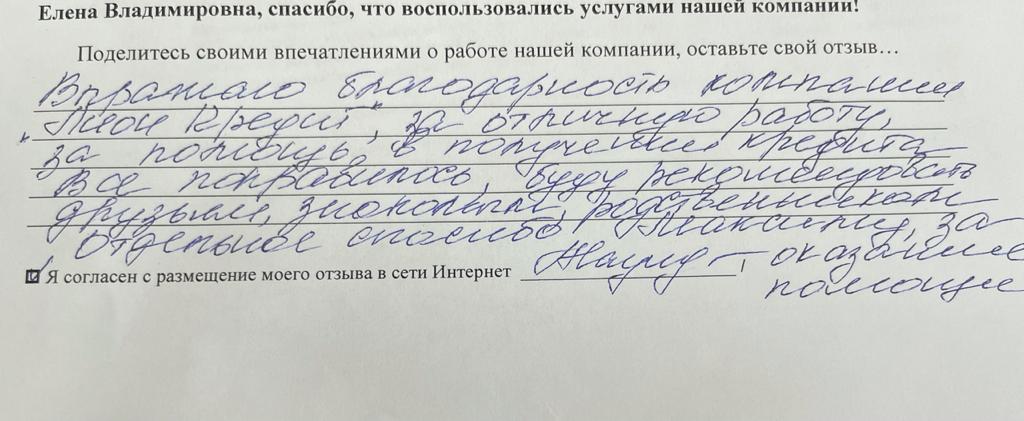 Елена Владимировна, спасибо, что воспользовались услугами нашей компании!
Поделитесь своими впечатлениями о работе нашей компании, оставьте свой отзыв…
Выражаю благодарность компании
"Твой Кредит", за отличную работу,
за помощь в получении кредита
Все понравилось, буду рекомендовать
друзьям, знакомым, родственникам
, отдельное спасибо Максиму, за
Я согласен с размещение моего отзыва в сети Интернет
оказание
помощи